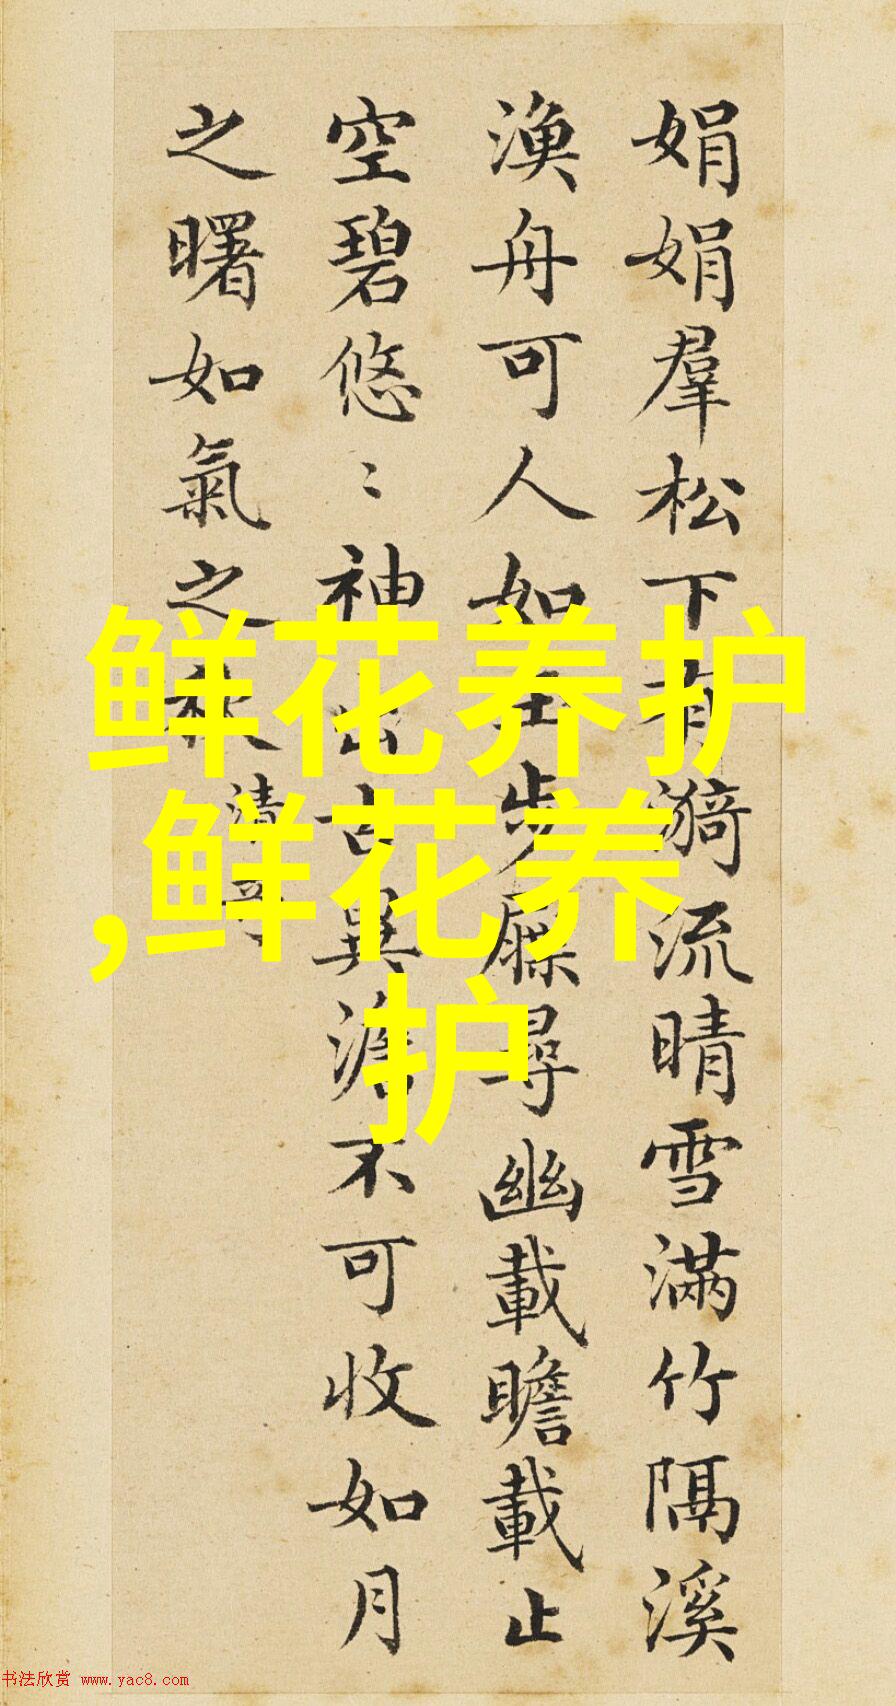 娟娟羣松下有漪流晴雪滿竹隔溪
漁舟可人如玉步屧尋幽載瞻載止
空碧悠〻神出古異澹不可收如月
之曙如氣之秋
清奇
鲜花养护
,鲜花养
护
书法欣赏 www.yac8.com